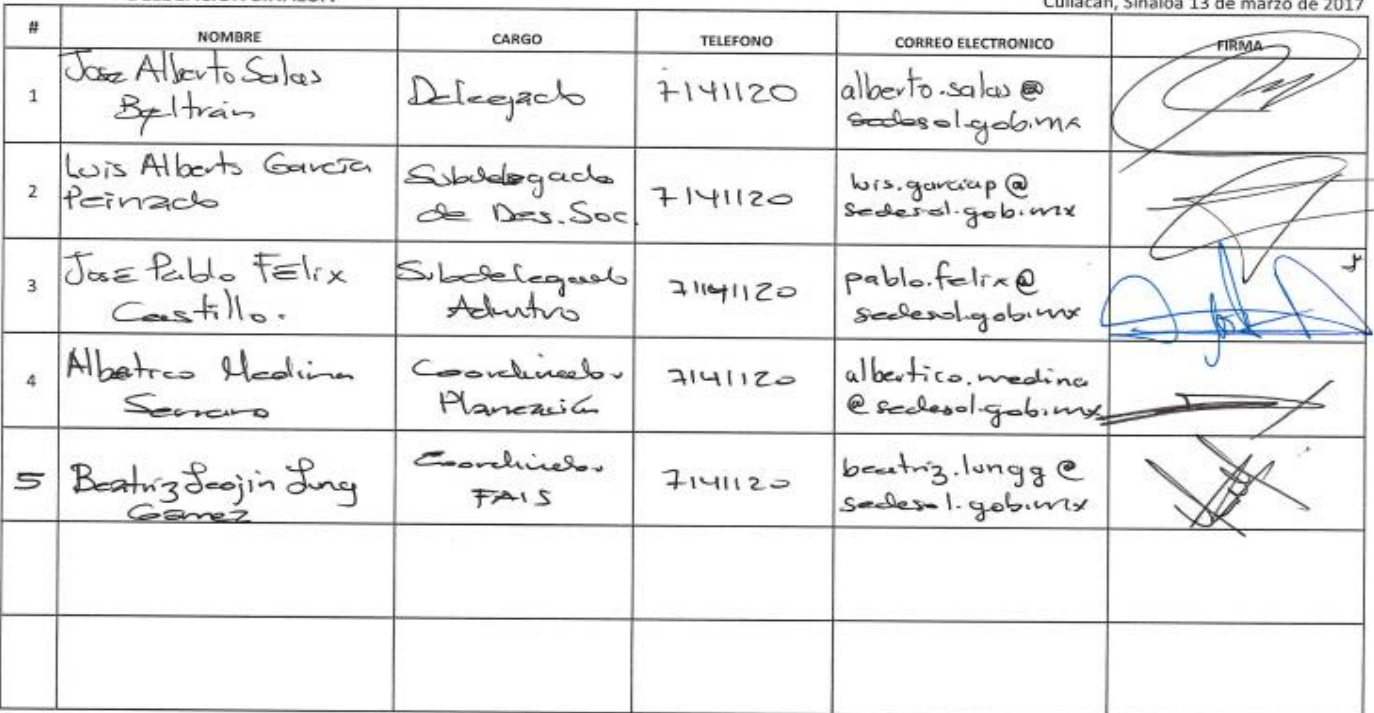 Culiacán, Sinaloa 13 de marzo de 2017
# NOMBRE CARGO TELEFONO CORREO ELECTRONICO FIRMA
1 Jose Alberto Salas Beltrán Delegado 7141120 alberto.salas@sedesol.gob.mx
2 Luis Alberto García Peinado Subdelegado de Des. Soc. 7141120 luis.garciap@sedesol.gob.mx
3 José Pablo Félix Castillo. Subdelegado Admtvo 7141120 pablo.felix@sedesol.gob.mx
4 Albertico Medina Serrano Coordinador Planeación 7141120 albertico.medina@sedesol.gob.mx
5 Beatriz Leojin Lung Gamez Coordinador FAIS 7141120 beatriz.lungg@sedesol.gob.mx